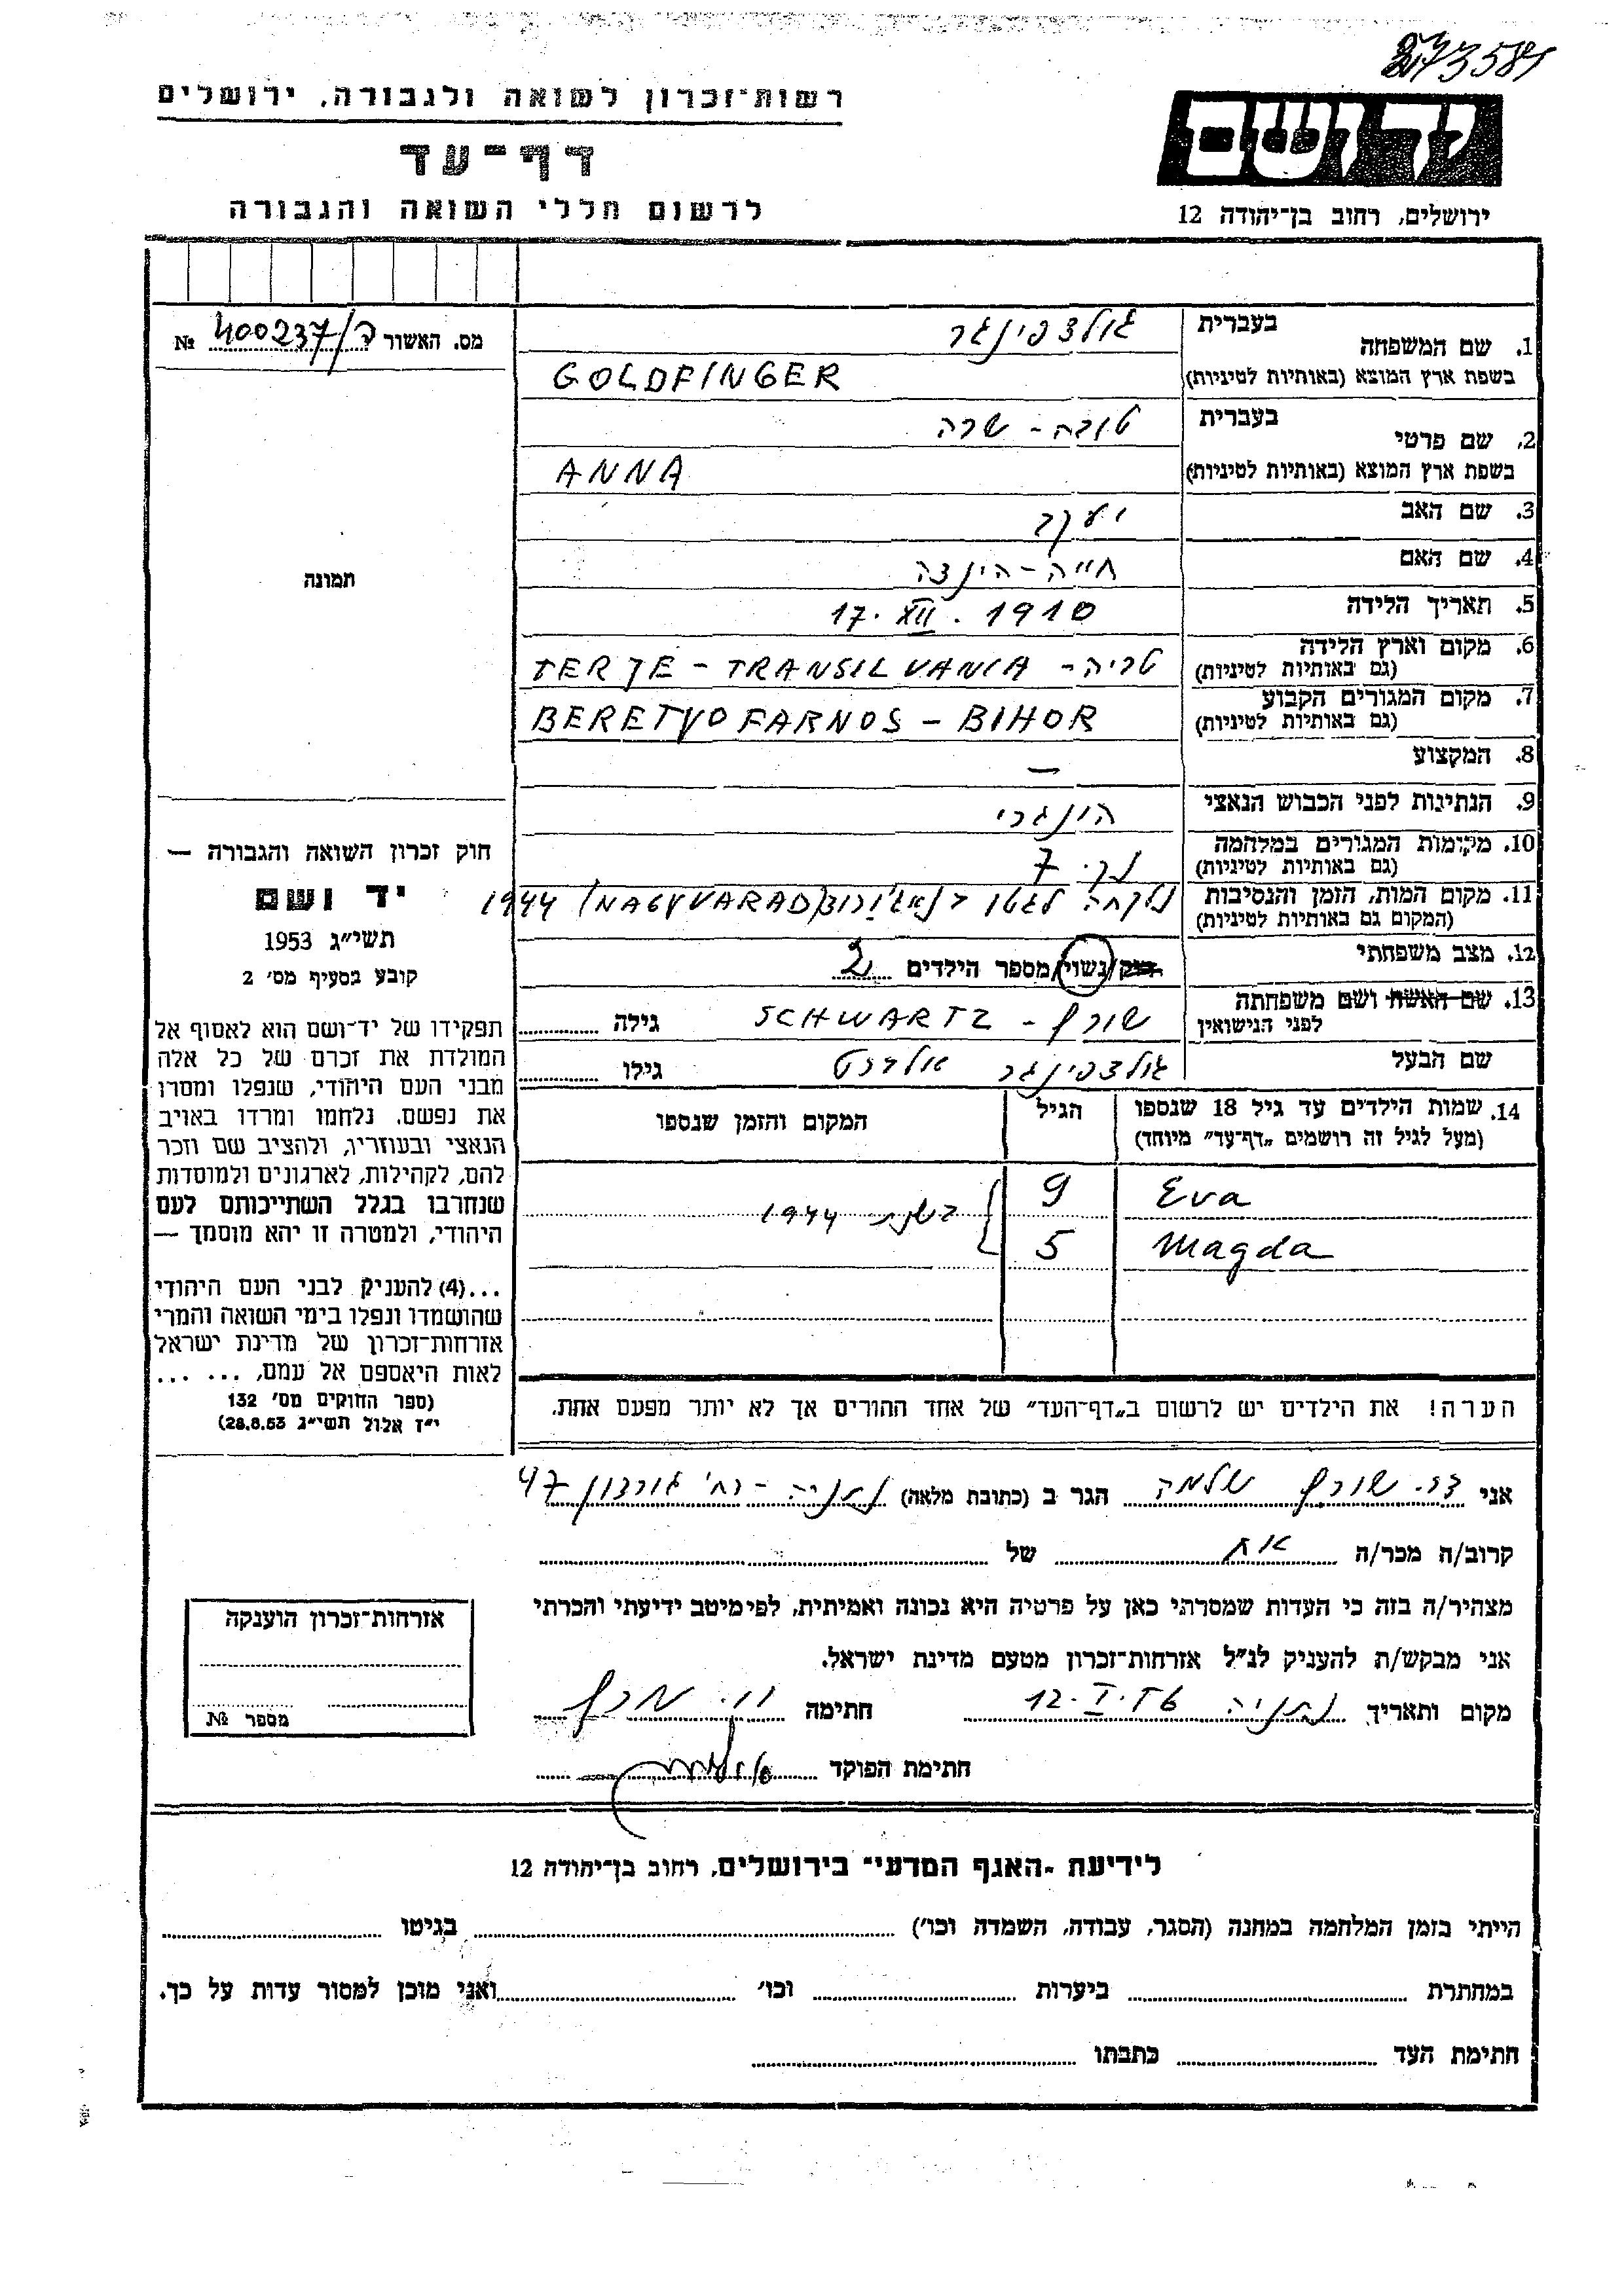 273581
רשות־זכרון לשואה ולגבורה, ירושלים
דף־עד
לרשום חללי השואה והגבורה
יד ושם
ירושלים, רחוב בן־יהודה 12
מס. האשור ה/400237 №
1. שם המשפחה בעברית גולדפינגר
בשפת ארץ המוצא (באותיות לטיניות) GOLDFINGER
2. שם פרטי בעברית טובה - שרה
בשפת ארץ המוצא (באותיות לטיניות) ANNA
3. שם האב יעקב
4. שם האם חייה - הינדה
5. תאריך הלידה 17. XII. 1910
6. מקום וארץ הלידה (גם באותיות לטיניות) טריה - TERJE - TRANSILVANIA
7. מקום המגורים הקבוע (גם באותיות לטיניות) BERETYOFARNOS - BIHOR
8. המקצוע —
9. הנתינות לפני הכבוש הנאצי הונגרי
10. מקומות המגורים במלחמה (גם באותיות לטיניות) כנ. 7
11. מקום המות, הזמן והנסיבות (המקום גם באותיות לטיניות) נלקחה לגטו (NAGYVARAD) 1944
12. מצב משפחתי רווק/נשוי/מספר הילדים 2
13. שם האשה ושם משפחתה לפני הנישואין שורץ - SCHWARTZ גילה
שם הבעל גולדפינגר אלברט גילו
14. שמות הילדים עד גיל 18 שנספו (מעל לגיל זה רושמים „דף־עד” מיוחד) הגיל המקום והזמן שנספו
Eva 9
Magda 5
בשנת 1944
תמונה
חוק זכרון השואה והגבורה —
יד ושם
תשי״ג 1953
קובע בסעיף מס׳ 2
תפקידו של יד־ושם הוא לאסוף אל
המולדת את זכרם של כל אלה
מבני העם היהודי, שנפלו ומסרו
את נפשם, נלחמו ומרדו באויב
הנאצי ובעוזריו, ולהציב שם וזכר
להם, לקהילות, לארגונים ולמוסדות
שנחרבו בגלל השתייכותם לעם
היהודי, ולמטרה זו יהא מוסמך —
...(4) להעניק לבני העם היהודי
שהושמדו ונפלו בימי השואה והמרי
אזרחות־זכרון של מדינת ישראל
לאות היאספם אל עמם, ... ...
(ספר החוקים מס׳ 132
י״ז אלול תשי״ג 28.8.53)
הערה! את הילדים יש לרשום ב„דף־העד” של אחד ההורים אך לא יותר מפעם אחת.
אני דר. שורץ שלמה הגר ב (כתובת מלאה) נתניה - רח׳ גורדון 47
קרוב/ה מכר/ה אח של
מצהיר/ה בזה כי העדות שמסרתי כאן על פרטיה היא נכונה ואמיתית, לפי מיטב ידיעתי והכרתי
אני מבקש/ת להעניק לנ״ל אזרחות־זכרון מטעם מדינת ישראל.
מקום ותאריך נתניה 12. I. חתימה
חתימת הפוקד
אזרחות־זכרון הוענקה
מספר №
לידיעת ־האגף המדעי־ בירושלים, רחוב בן־יהודה 12
הייתי בזמן המלחמה במחנה (הסגר, עבודה, השמדה וכו׳) בגיטו
במחתרת ביערות וכו׳ ואני מוכן למסור עדות על כך.
חתימת העד כתבתו